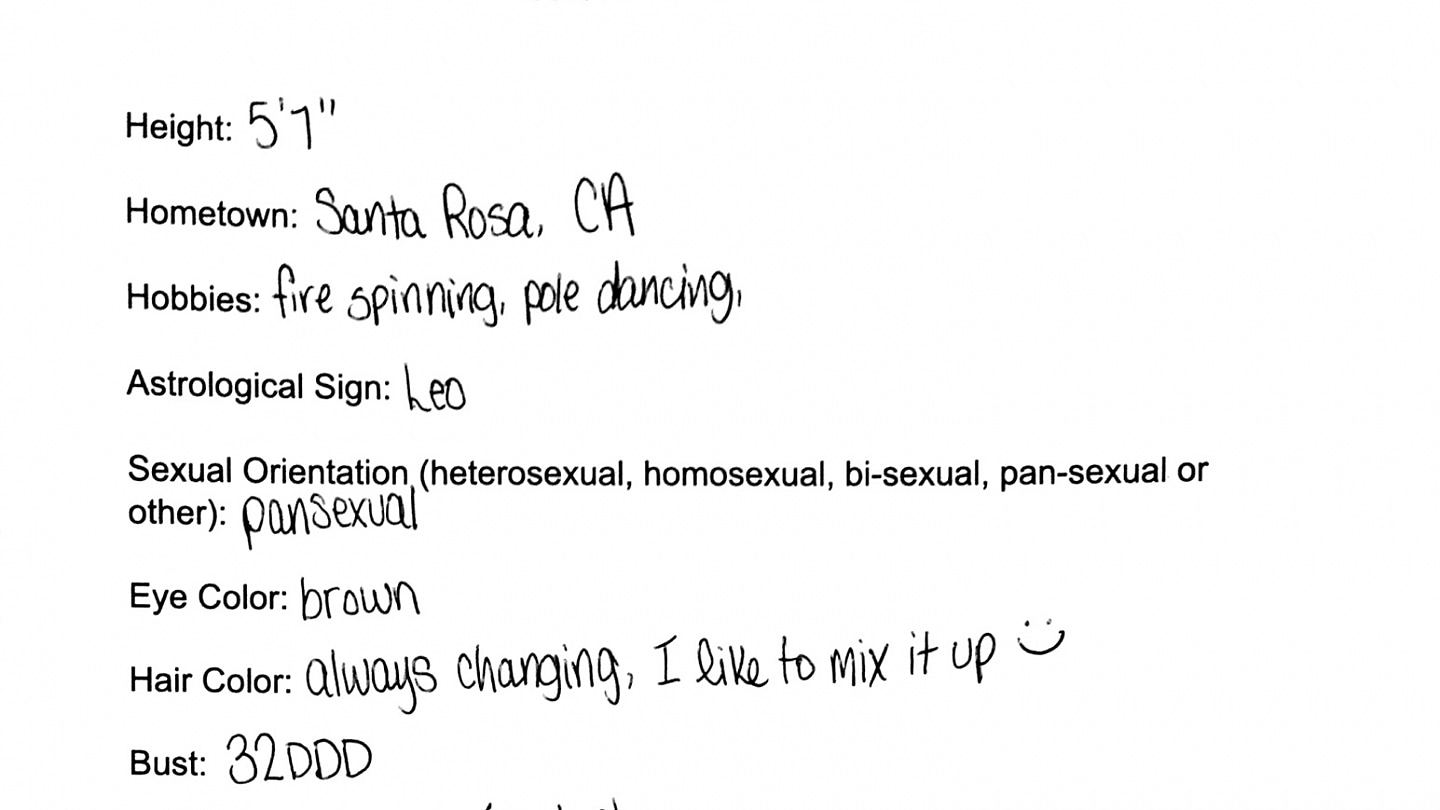 Height: 5'7"
Hometown: Santa Rosa, CA
Hobbies: fire spinning, pole dancing,
Astrological Sign: Leo
Sexual Orientation (heterosexual, homosexual, bi-sexual, pan-sexual or
other): pansexual
Eye Color: brown
Hair Color: always changing, I like to mix it up :)
Bust: 32DDD